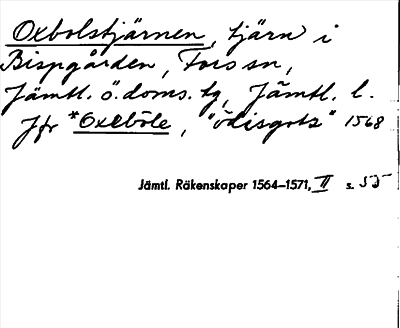 Oxbolstjärnen, tjärn i
Bispgården, Fors sn,
Jämtl. ö. doms. tg, Jämtl. l.
Jfr *Oxeböle, "ödisgotz" 1568
Jämtl. Räkenskaper 1564–1571, II s. 55